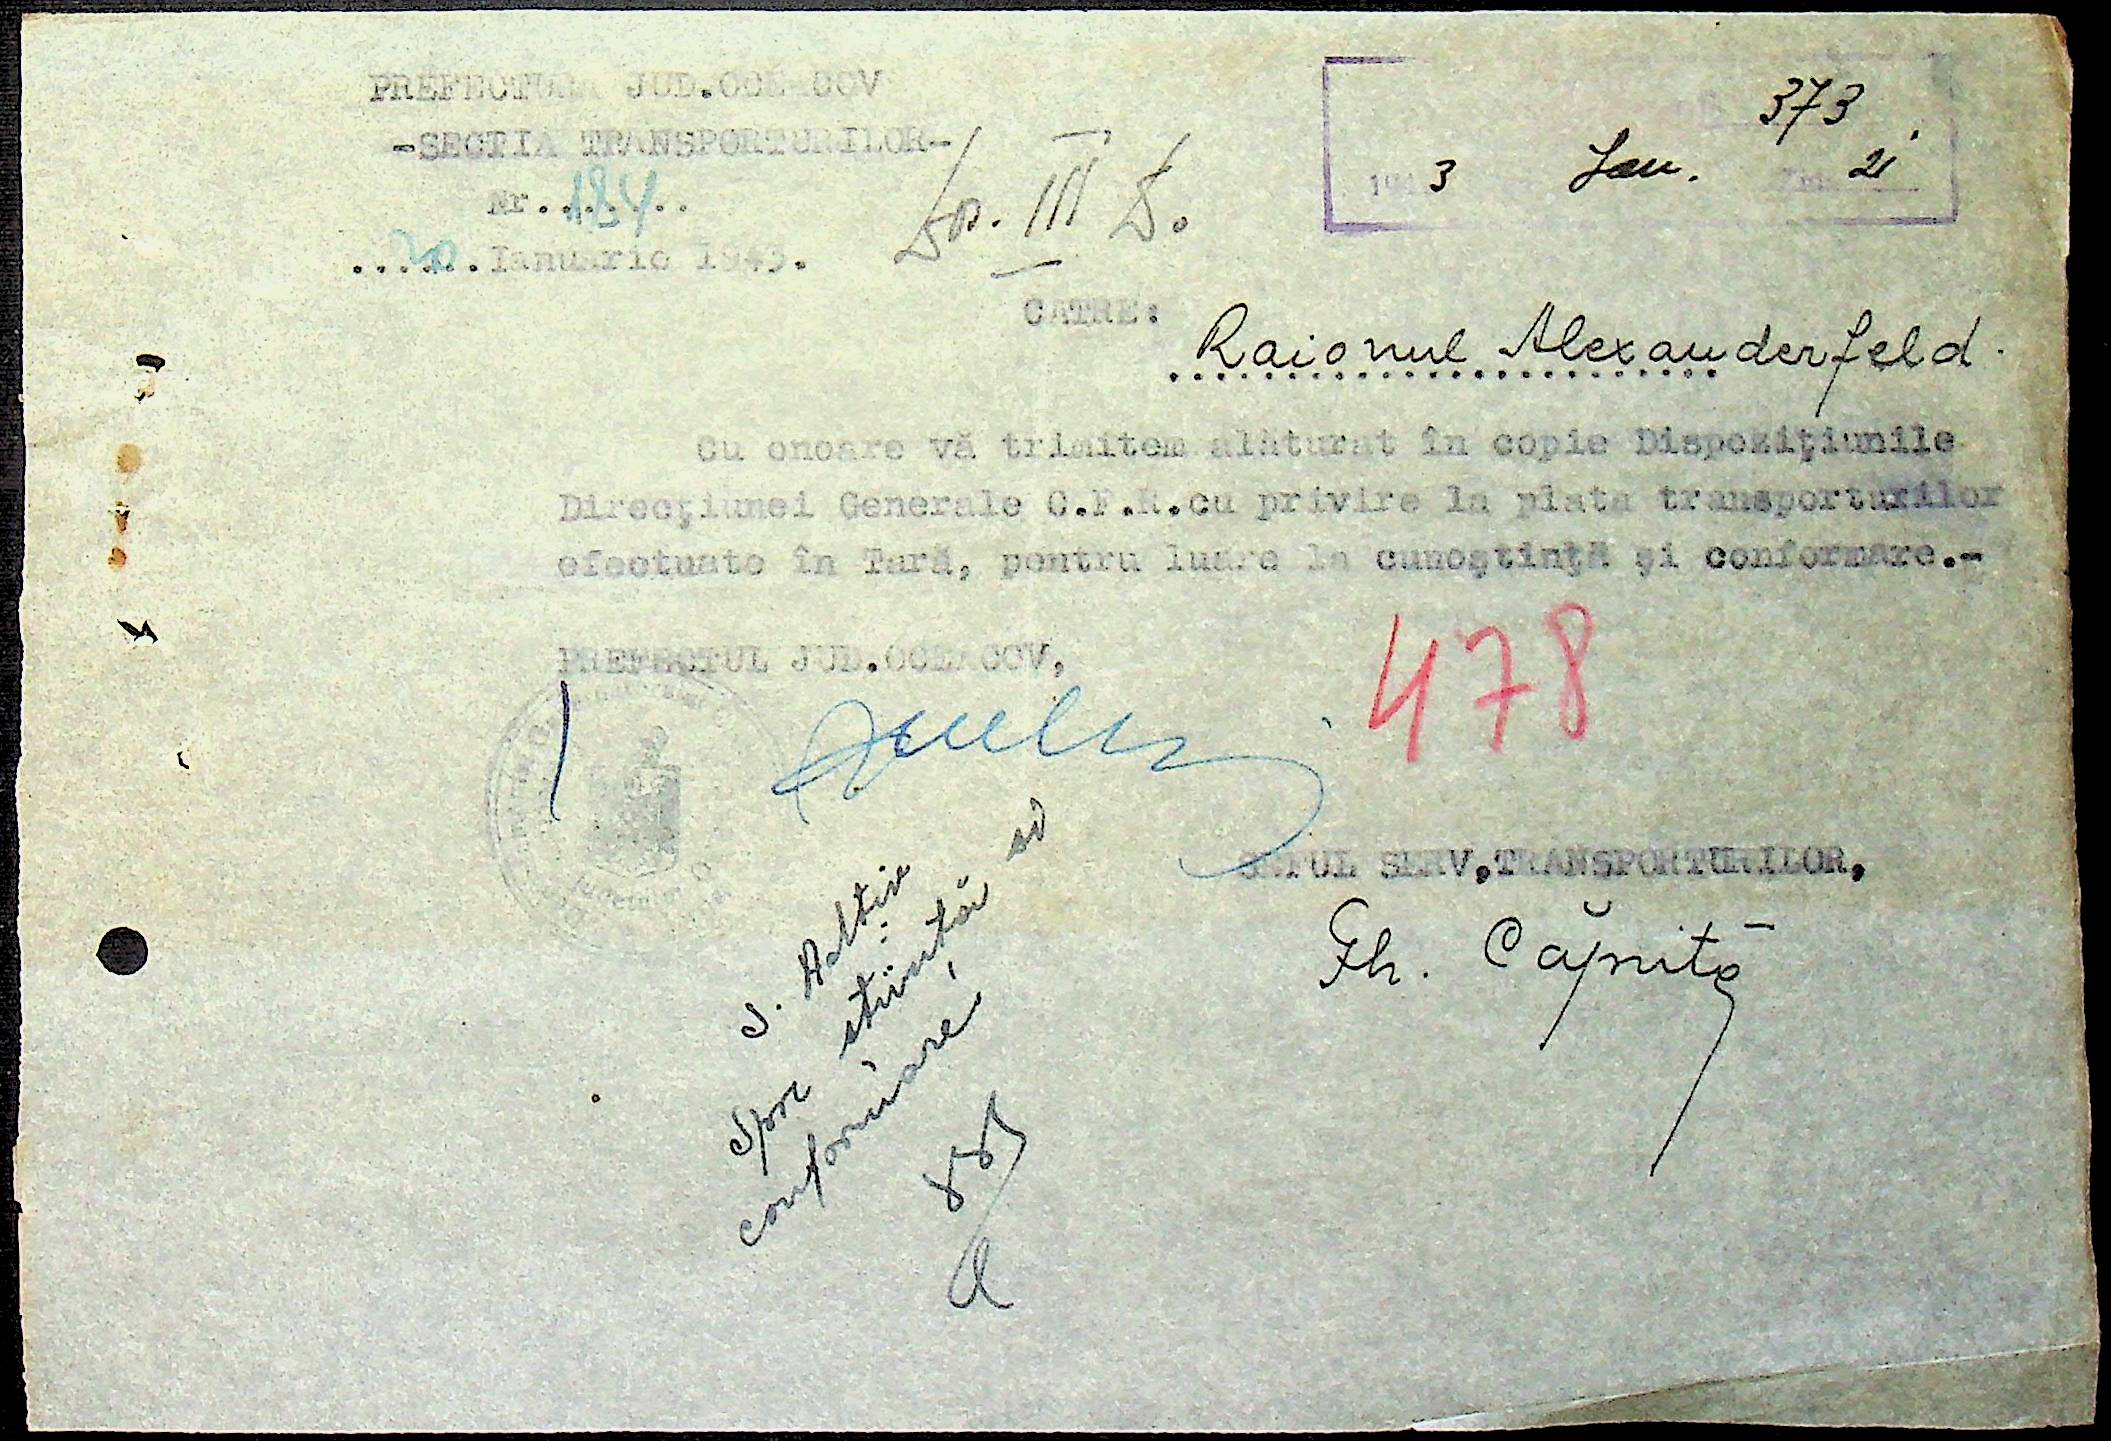 PREFECTURA JUD.OCEACOV
-SECTIA TRANSPORTURILOR-
Nr..184..
....20.Ianuarie 1943.
373
194 3 Ian. 21
III
CATRE:
Raionul Alexanderfeld.
Cu onoare vă trimitem alăturat în copie Dispoziţiunile
Direcţiunei Generale C.F.R.cu privire la plata transporturilor
efectuate în Tară, pentru luare la cunoştinţă şi conformare.-
478
PREFECTUL JUD.OCEACOV,
ŞEFUL SERV,TRANSPORTURILOR,
Gh. Căpnită
Spre stiintă si
conformare